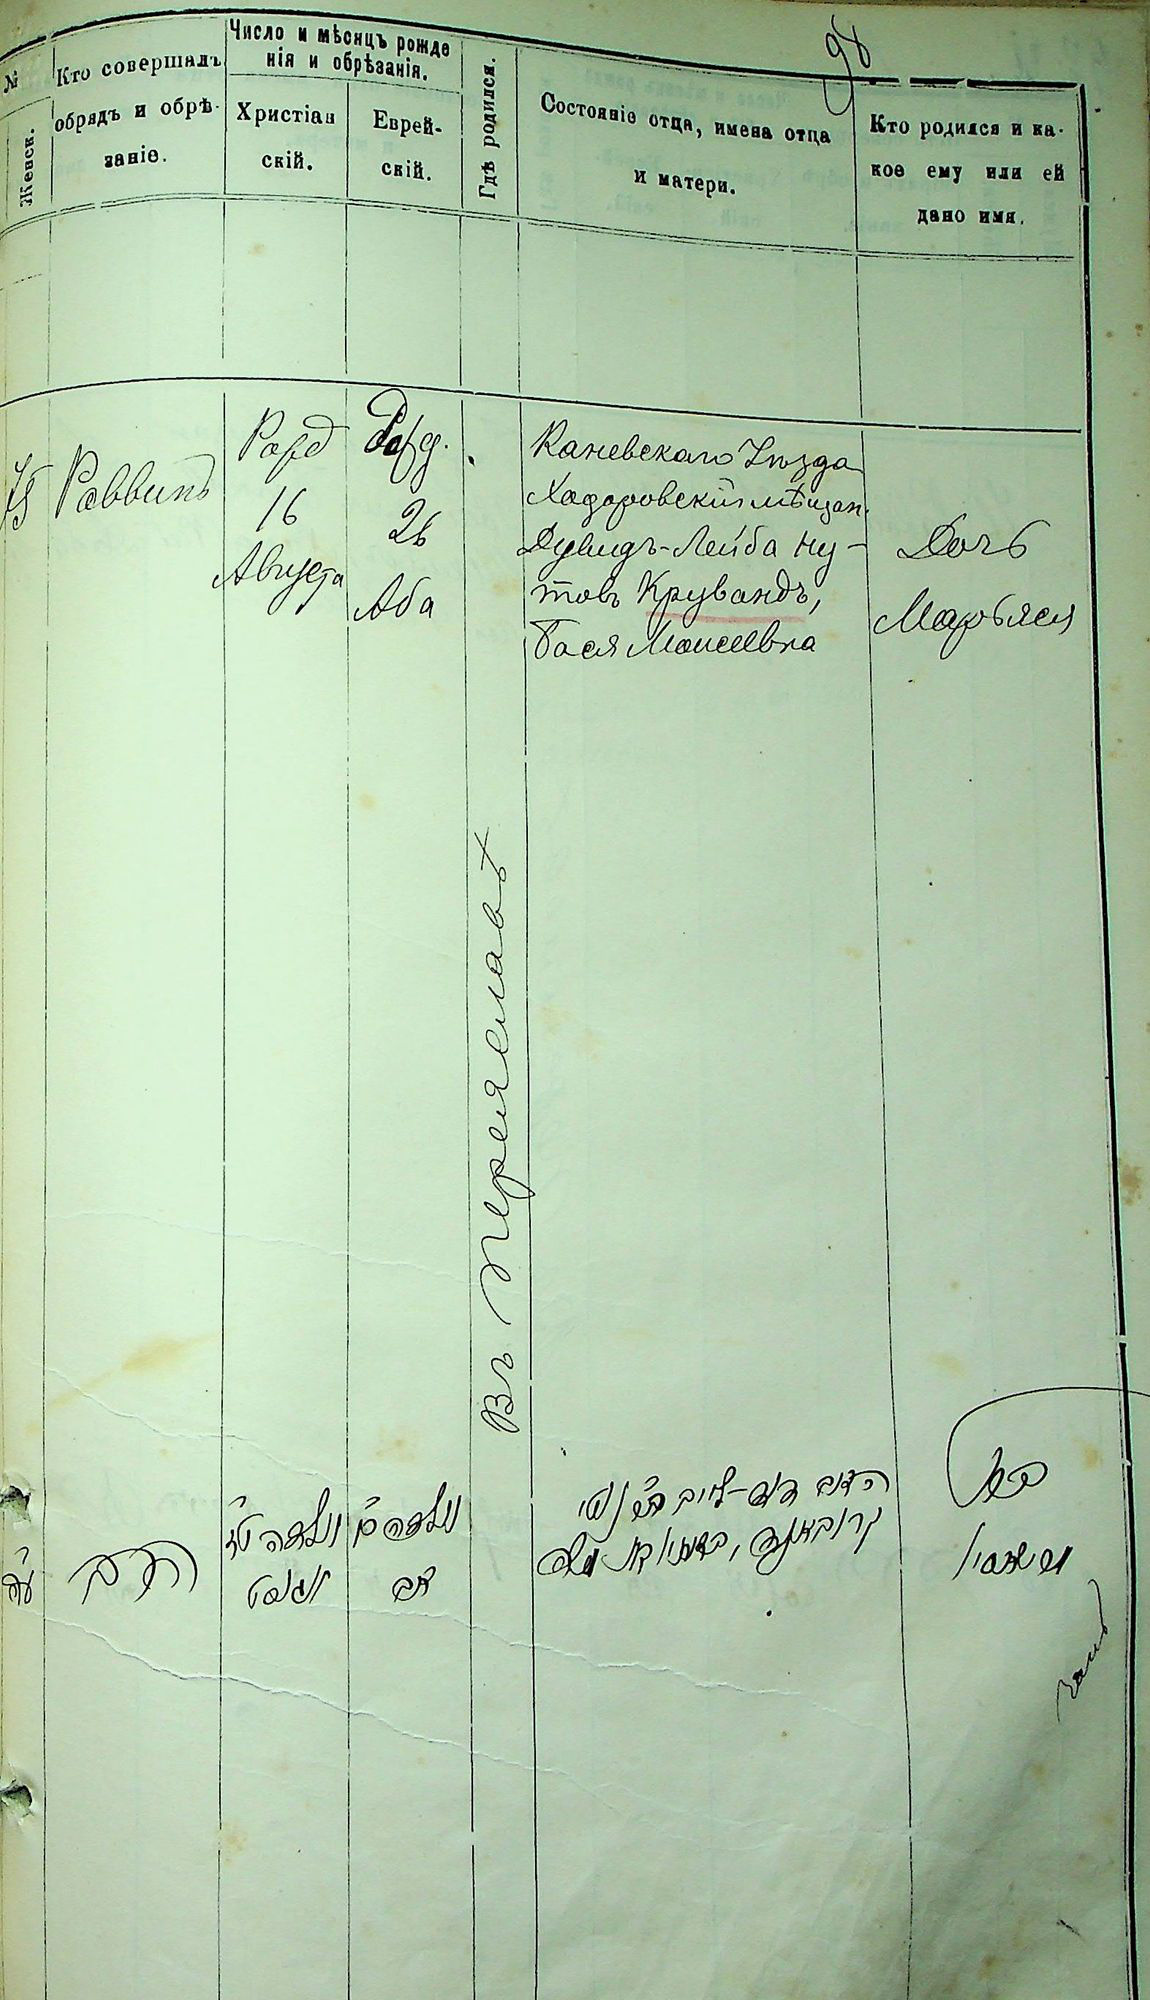 98
№
Женск.
Кто совершалъ
обрядъ и обрѣ-
заніе.
Число и мѣсяцъ рожде
нія и обрѣзанія.
Христіан
скій.
Еврей-
скій.
Гдѣ родился.
Состояніе отца, имена отца
и матери.
Кто родился и ка-
кое ему или ей
дано имя.
75
Раввинъ
Рожд
16
Августа
Рожд.
26
Аба
Въ Переяславѣ
Каневскаго Уѣзда
Ходоровскій мѣщан.
Дувидъ-Лейба Ну-
товъ Крувандъ,
Бася Моисеевна
Дочь
Марьяся
הרב
נולדה
אויגוסט
נולדה
אב